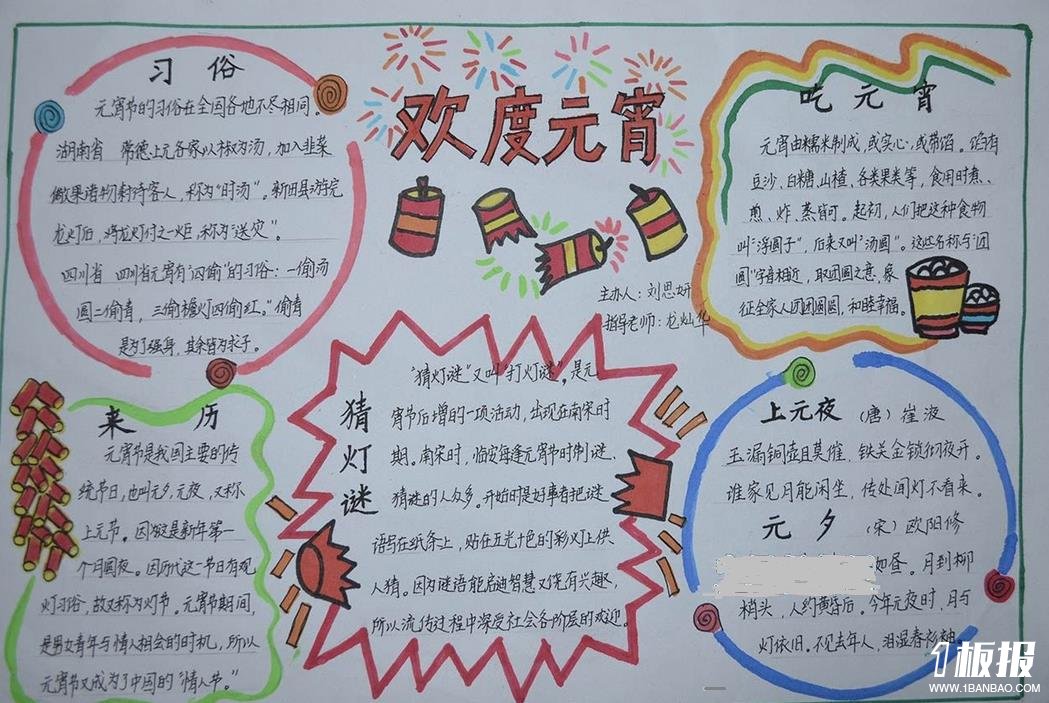 欢度元宵
主办人：刘思妍
指导老师：龙灿华
习俗
元宵节的习俗在全国各地不尽相同。
湖南省 常德上元各家以椒为汤，加入韭菜
诸物 待客人，称为“时汤”。新田县游完
龙灯后，将龙灯付之一炬，称为“送灾”。
四川省 四川省元宵有“四偷”的习俗：一偷汤
圆二偷青，三偷檐灯四偷红。“偷青
是为了强身，其余皆为求子。
吃元宵
元宵由糯米制成，或实心，或带馅。馅有
豆沙、白糖、山楂、各类果类等，食用时煮、
煎、炸、蒸皆可。起初，人们把这种食物
叫“浮圆子”，后来又叫“汤圆”。这些名称与“团
圆”字音相近，取团圆之意，象
征全家人团团圆圆，和睦幸福。
来历
元宵节是我国主要的传
统节日，也叫元夕，元夜，又称
上元节。因为这是新年第一
个月圆夜。因历代这一节日有观
灯习俗，故又称为灯节。元宵节期间，
是男女青年与情人相会的时机，所以
元宵节又成为了中国的“情人节。”
猜灯谜
“猜灯谜”又叫“打灯谜”。是元
宵节后增的一项活动，出现在南宋时
期。南宋时，临安每逢元宵节时制谜、
猜谜的人众多。开始时是好事者把谜
语写在纸条上，贴在五光十色的彩灯上供
人猜。因为谜语能启迪智慧又饶有兴趣，
所以流传过程中深受社会各阶层的欢迎。
上元夜 （唐）崔液
玉漏铜壶且莫催，铁关金锁彻夜开。
谁家见月能闲坐，传处闻灯不看来。
元夕 （宋）欧阳修
如昼。月到柳
梢头，人约黄昏后。今年元夜时，月与
灯依旧。不见去年人，泪湿春衫袖。
1板报
WWW.1BANBAO.COM